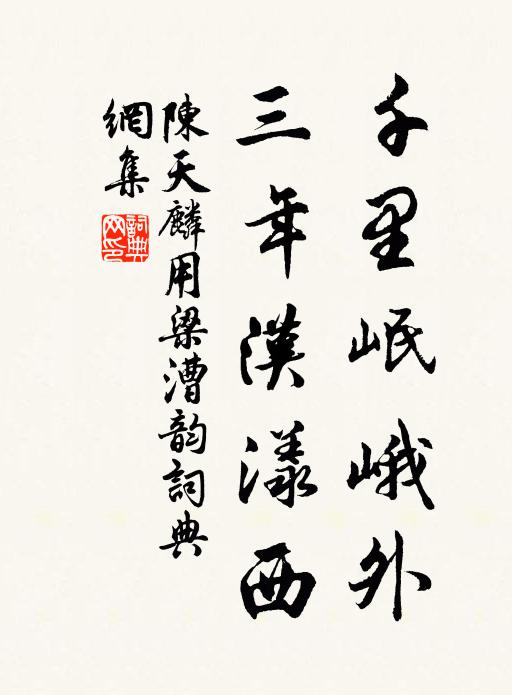 千里岷峨外
三年漢漾西
陳天麟用梁漕韵詞典
網集
詞典網印